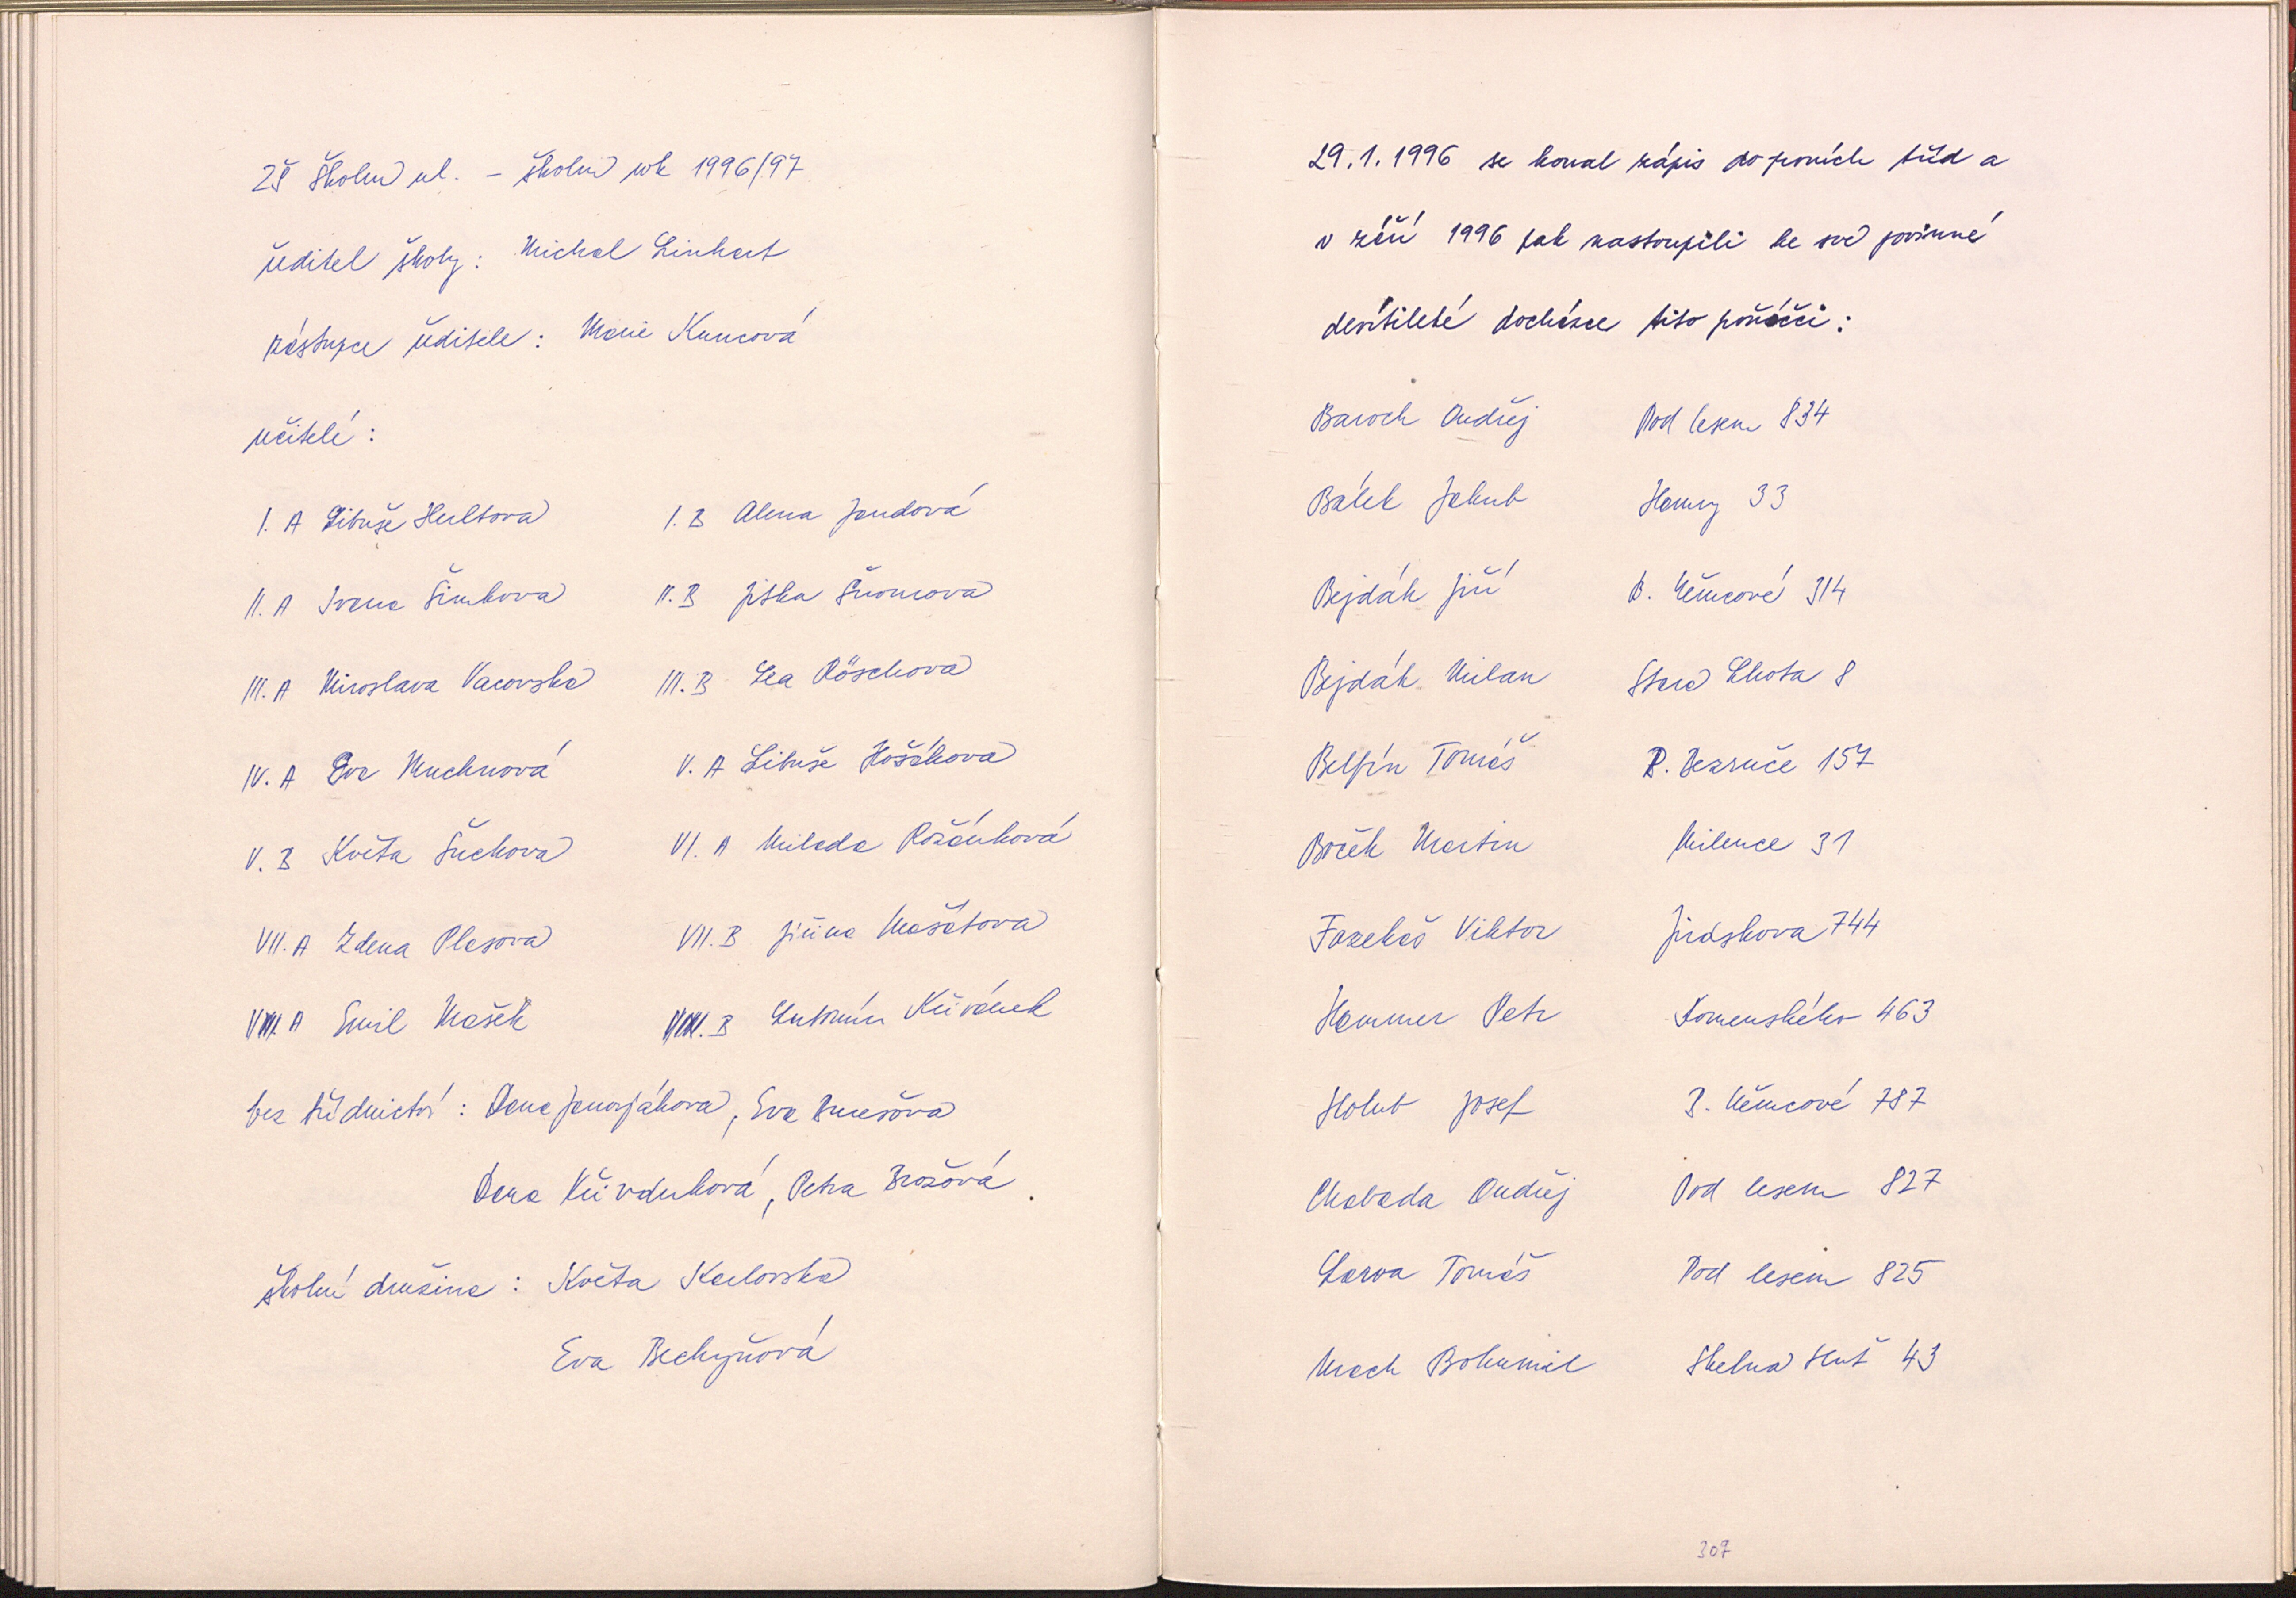 ZŠ Školní ul. - školní rok 1996/97
ředitel školy: Michal Linhart
zástupce ředitele: Marie Kuncová
učitelé:
I. A Libuše Hultová
I. B Alena Jandová
II. A Ivana Šimková
II. B Jitka Šromová
III. A Miroslava Vacovská
III. B Lea Röschová
IV. A Eva Muchnová
V. A Libuše Hošáková
V. B Květa Šuchová
VI. A Milada Rožánková
VII. A Zdena Plasová
VII. B Jiřina Mašátová
VIII. A Emil Mašek
VIII. B Antonín Křivánek
bez třídnictví: Dana Janorjáková, Eva
Dana Křivánková, Petra Brožová.
školní družina: Květa Karlovská
Eva Bechyňová
29.1.1996 se konal zápis do prvních tříd a
v září 1996 pak nastoupili ke své povinné
devítileté docházce tito prňáčci:
Baroch Ondřej Pod lesem 834
Bálek Jakub Hamry 33
Bejdák Jiří B. Němcové 314
Bejdák Milan Stará Lhota 8
Belfín Tomáš P. Bezruče 157
Boček Martin Milence 31
Fazekaš Viktor Jiráskova 744
Hammer Petr Komenského 463
Holub Josef B. Němcové 787
Chabada Ondřej Pod lesem 827
Larva Tomáš Pod lesem 825
Mach Bohumil Skelná Huť 43
307